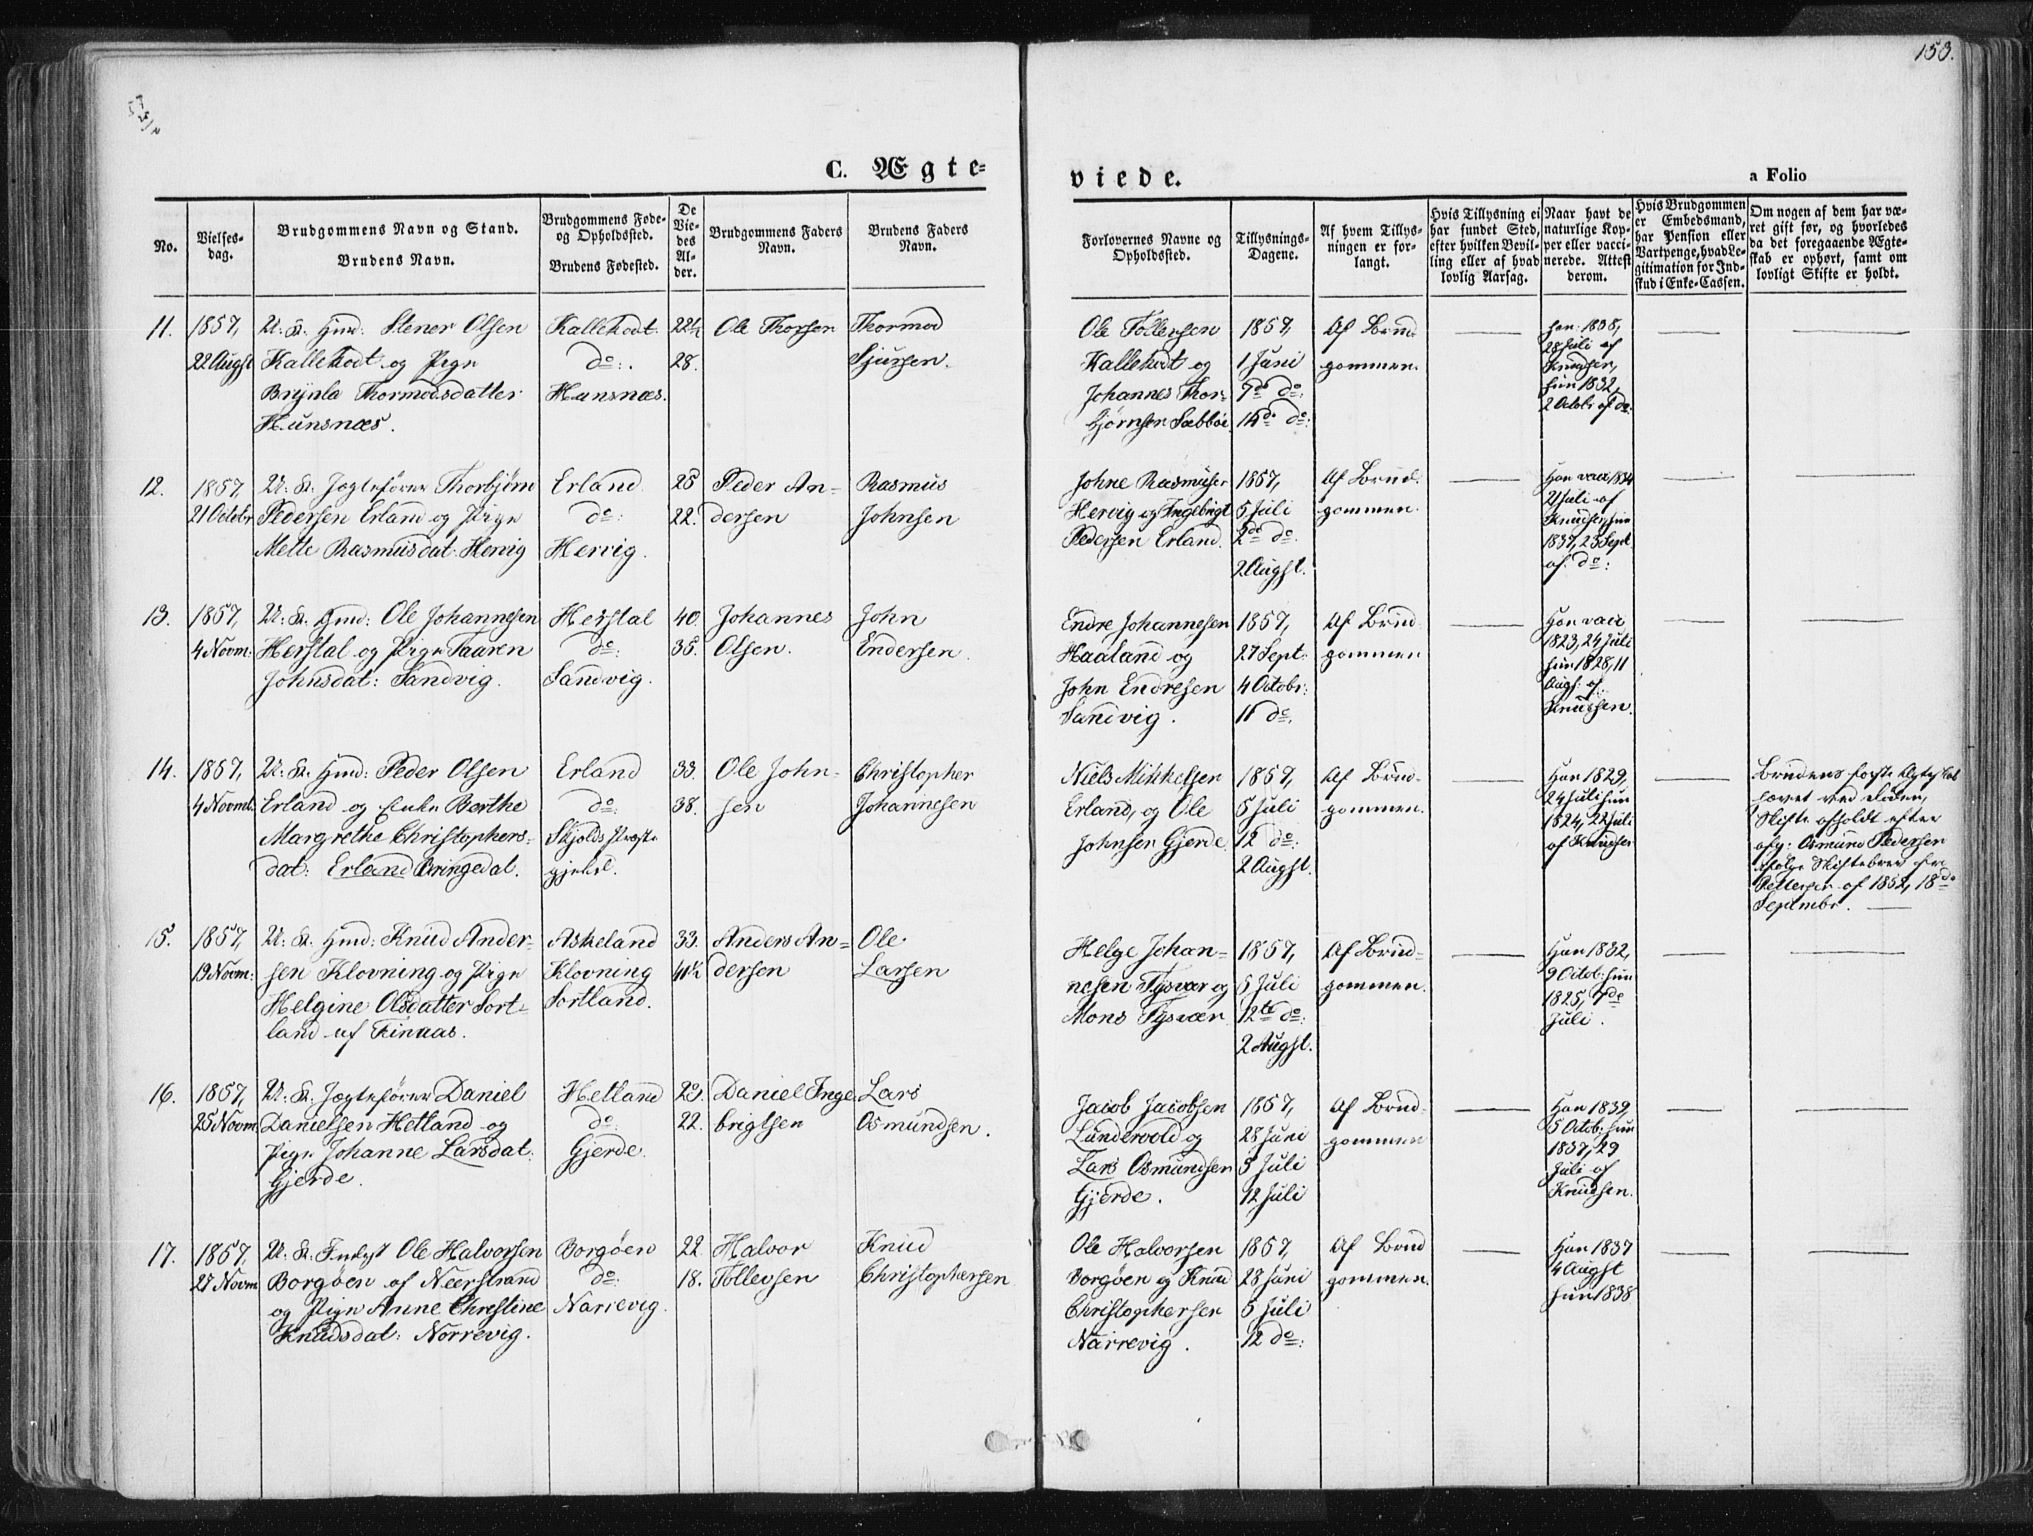 153.
C. Ægte=
viede.
a Folio
No.
Vielses-
dag.
Brudgommens Navn og Stand.
Brudens Navn.
Brudgommens Føde-
og Opholdssted.
Brudens Fødested.
De
Vie-
des
Al-
der.
Brudgommens Faders
Navn.
Brudens Faders
Navn.
Forlovernes Navne og
Opholdsted.
Tillysnings-
Dagene.
Af hvem Tillys-
ningen er for-
langt.
Hvis Tillysning ei
har fundet Sted,
efter hvilken Bevil-
ling eller af hvad
lovlig Aarsag.
Naar havt de
naturlige Kop-
per eller vacci-
nerede. Attest
derom.
Hvis Brudgommen
er Embedsmand,
har Pension eller
Vartpenge, hvad Le-
gitimation for Ind-
skud i Enke-Cassen.
Om nogen af dem har væ-
ret gift før, og hvorledes
da det foregaaende Ægte-
skab er ophørt, samt om
lovligt Skifte er holdt.
11.
1857,
22 Augst
U: K. Gmd: Stener Olsen
Kallekodt og Pign
Brynla Thormodsdatter
Hunsnæs.
Kallekodt
do:
Hunsnæs.
22½
28.
Ole Thorsen
Thormod
Sjursen.
Ole Tollevsen
Kallekodt og
Johannes Thor-
bjørnsen Sæbbøe
1857,
1 Juni
7de do:
14de do:
Af Brud-
gommen.
han 1838,
28 Juli af
Knudsen,
hun 1832,
2 Octobr af do.
12.
1857,
21 Octobr
U: K. Jagtefører Thorbjørn
Pedersen Erland og Pign
Mette Rasmusdat: Hervig
Erland
do:
Hervig.
25
22.
Peder An-
dersen
Rasmus
Johnsen
Johne Rasmusen
Hervig og Ingebrigt
Pedersen Erland.
1857,
5 Juli
2de do.
2 Augst.
Af Brud-
gommen.
Han vacc 1834
21 Juli af
Knudsen, hun
1837, 23 Sept.
af. do:
13.
1857,
4 Novm:
U: K. Gmd: Ole Johannesen
Herstal og Pign Taaren
Johnsdat: Sandvig.
Herstal
do:
Sandvig.
40.
35.
Johannes
Olsen.
John
Endersen.
Endre Johannesen
Haaland og
John Endresen
Sandvig.
1857,
27 Sept:
4 Octobr:
11 do.
Af Brud-
gommen
Han vacc
1823, 24 Juli
hun 1828, 11
Augs: af
Knudsen.
14.
1857,
4 Novmb.
U: K. Gmd: Peder Olsen
Erland og Enke Berthe
Margrethe Christophers-
dat: Erland Bringedal.
Erland
do:
Skjolds Præste
gjeld.
33.
38.
Ole John-
sen
Christopher
Johannesen
Niels Mikkelsen
Erland, og Ole
Johnsen Gjerde
1857,
5 Juli
12 do:
2 Augst.
Af Brud-
gommen.
Han 1829,
24 Juli hun
1824, 22 Juli
af Knudsen
Brudens første Ægteskab
hævet ved Døden,
Skifte afholdt efter
afg: Osmund Pedersen
ifølge Skiftebrev fra
af 1852, 18de
Septembr.
15.
1857,
19 Novm:
U: K. Gmd: Knud Ander-
sen Klovning og Pign
Helgine Olsdatter Sort-
land af Finnaas.
Askeland
Klovning
Sortland.
33.
41½
Anders An-
dersen
Ole
Larsen
Helge Johan-
nesen Tysvær og
Mons Tysvær
1857,
5 Juli
12te do:
2 Augst.
Af Brud-
gommen.
Han 1832,
9 Octob: hun
1825, 7de
Juli.
16.
1857,
25 Novm
U: K. Jægtefører Daniel
Danielsen Hetland og
Pign Johanne Larsdat:
Gjerde.
Hetland
do:
Gjerde.
20.
22.
Daniel Inge
brigtsen
Lars
Osmundsen.
Jacob Jacobsen
Lundevold og
Lars Osmundsen
Gjerde.
1857,
28 Juni
5 Juli
12 Juli
Af Brud-
gommen
Han 1839,
5 Octob: hun
1837, 29
Juli af
Knudsen.
17.
1857,
27 Novm
U: K. Inderst Ole Halvorsen
Borgøen af Nærstrand
og Pign Anne Christine
Knudsdat: Norrevig.
Borgøen
do:
Narrevig.
22.
18.
Halvor
Tollevsen
Knud
Christophersen
Ole Halvorsen
Borgøen og Knud
Christophersen
Narrevig.
1857,
28 Juni
5 Juli
12 do:
Af Brud
gommen.
Han 1837
4 Augst
hun 1838